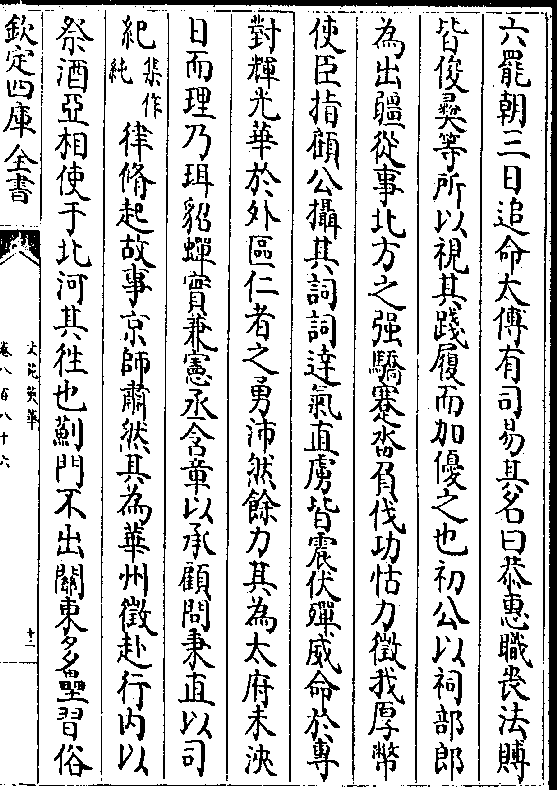 六罷朝三日追命太傅有司易其名曰恭惠職喪法賻
皆俊彛等所以視其踐履而加優之也初公以祠部郎
為出疆從事北方之强驕蹇沓負伐功怙力徵我厚幣
使臣指顧公攝其詞詞達氣直虜皆震伏殫威命於專
對輝光華於外區仁者之勇沛然餘力其為太府未浹
日而理乃珥貂蟬實兼憲丞含章以承顧問秉直以司
紀集作純律脩起故事京師肅然其為華州徵赴行内以
祭酒亞相使于北河其徃也薊門不出關東多壘習俗
欽定四庫全書
文苑英華
卷八百八十六
十二